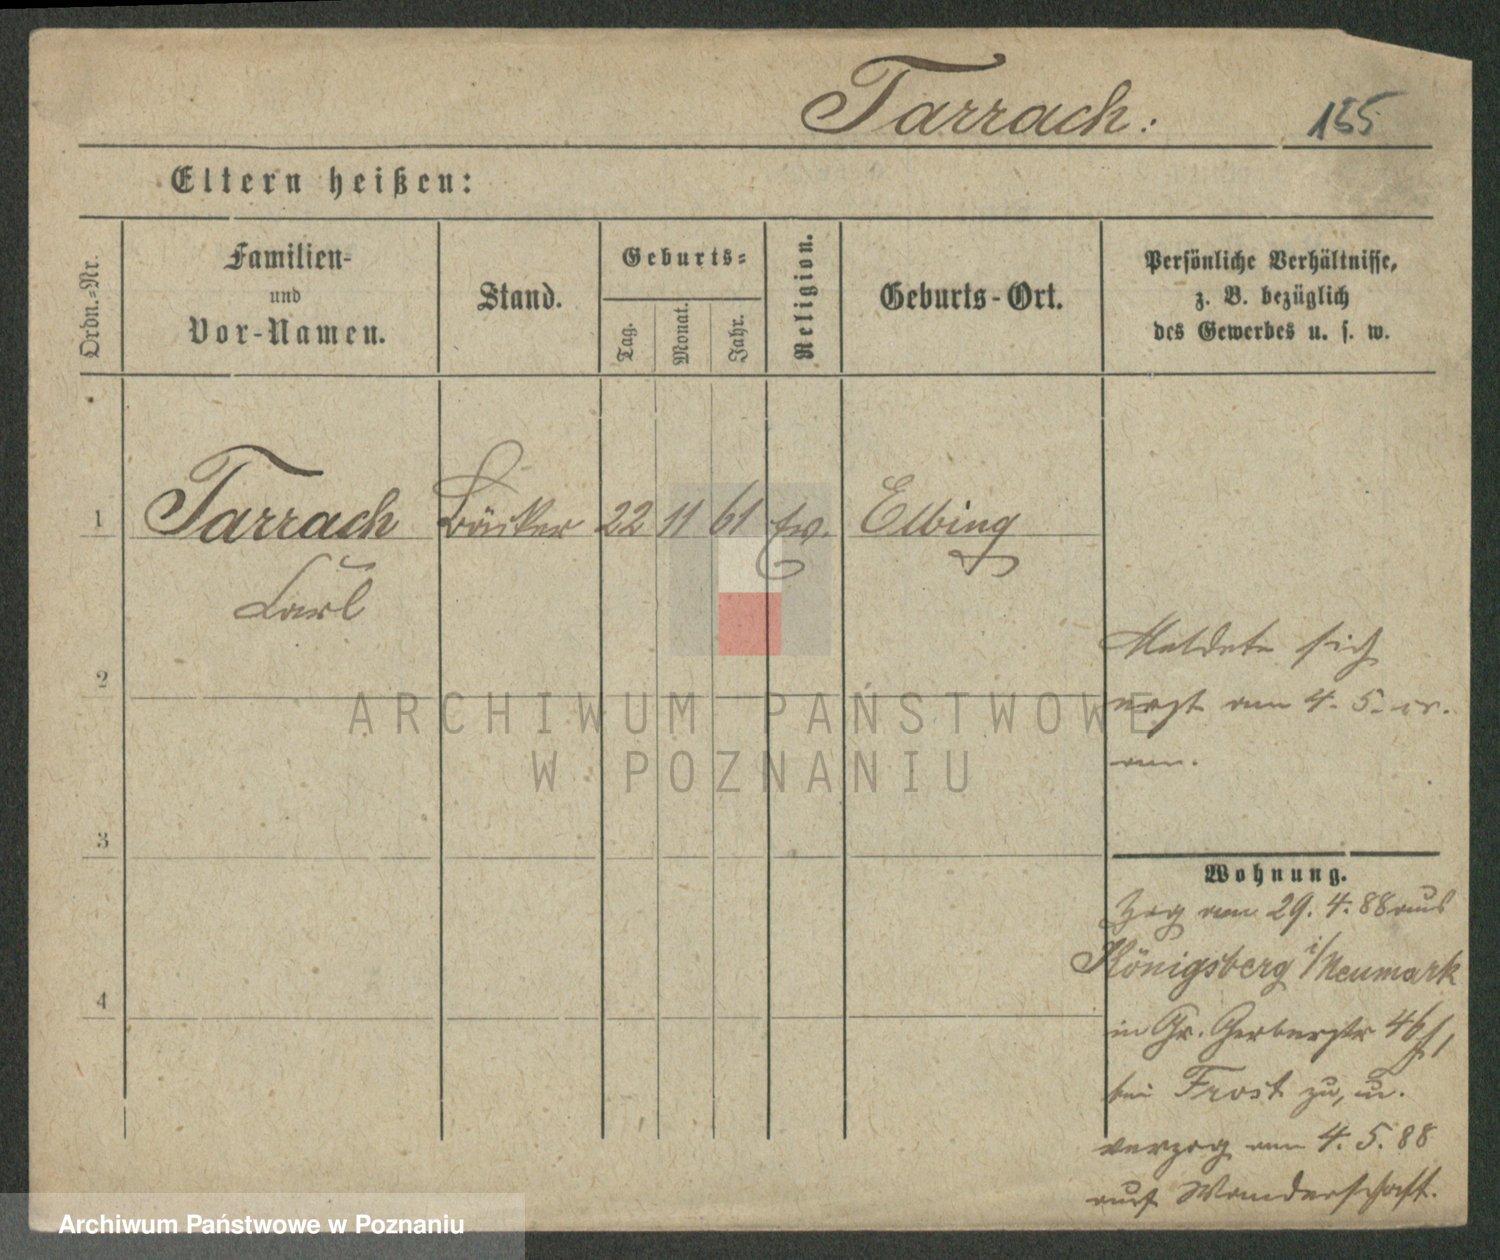 Tarrach: 155
Eltern heißen:
Ordn.-Nr.
Familien-
und
Vor-Namen.
Stand.
Geburts-
Tag.
Monat.
Jahr.
Religion.
Geburts-Ort.
Persönliche Verhältnisse,
z. B. bezüglich
des Gewerbes u. s. w.
1 Tarrach Bäcker 22 11 61 ev. Elbing
Carl
2
3
4
Meldete sich
erst am 4. 5. cr.
an.
Wohnung.
Zog am 29. 4. 88 aus
Königsberg i/Neumark
in Gr. Gerberstr 46
bei Frost zu, u.
verzog am 4. 5. 88
auf Wanderschaft.
ARCHIWUM PAŃSTWOWE
W POZNANIU
Archiwum Państwowe w Poznaniu